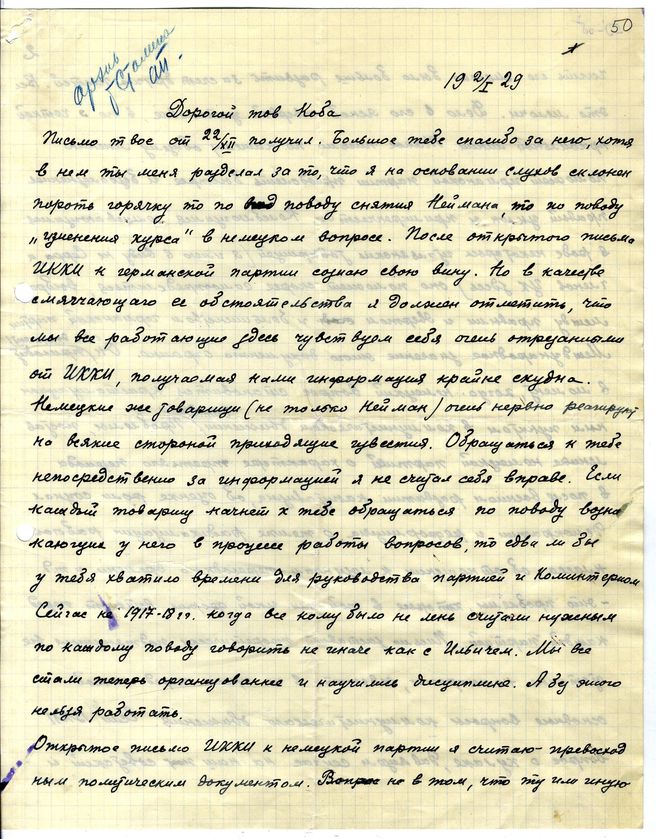 50
архив
т. Сталина
19 2/I 29
Дорогой тов Коба
Письмо твое от 22/XII получил. Большое тебе спасибо за него, хотя
в нем ты меня разделал за то, что я на основании слухов склонен
пороть горячку то по поводу снятия Неймана, то по поводу
„изменения курса" в немецком вопросе. После открытого письма
ИККИ к германской партии сознаю свою вину. Но в качестве
смягчающаго ее обстоятельства я должен отметить, что
мы все работающие здесь чувствуем себя очень отрезанными
от ИККИ, получаемая нами информация крайне скудна.
Немецкие же товарищи (не только Нейман) очень нервно реагируют
на всякие стороной приходящие известия. Обращаться к тебе
непосредственно за информацией я не считал себя вправе. Если
каждый товарищ начнет к тебе обращаться по поводу возни
кающих у него в процессе работы вопросов, то едва ли бы
у тебя хватило времени для руководства партией и Коминтерном
Сейчас не 1917-18 гг. когда все кому было не лень считали нужным
по каждому поводу говорить не иначе как с Ильичем. Мы все
стали теперь организованнее и научились дисциплине. А без этого
нельзя работать.
Открытое письмо ИККИ к немецкой партии я считаю превосход
ным политическим документом. Вопрос не в том, что ту или иную